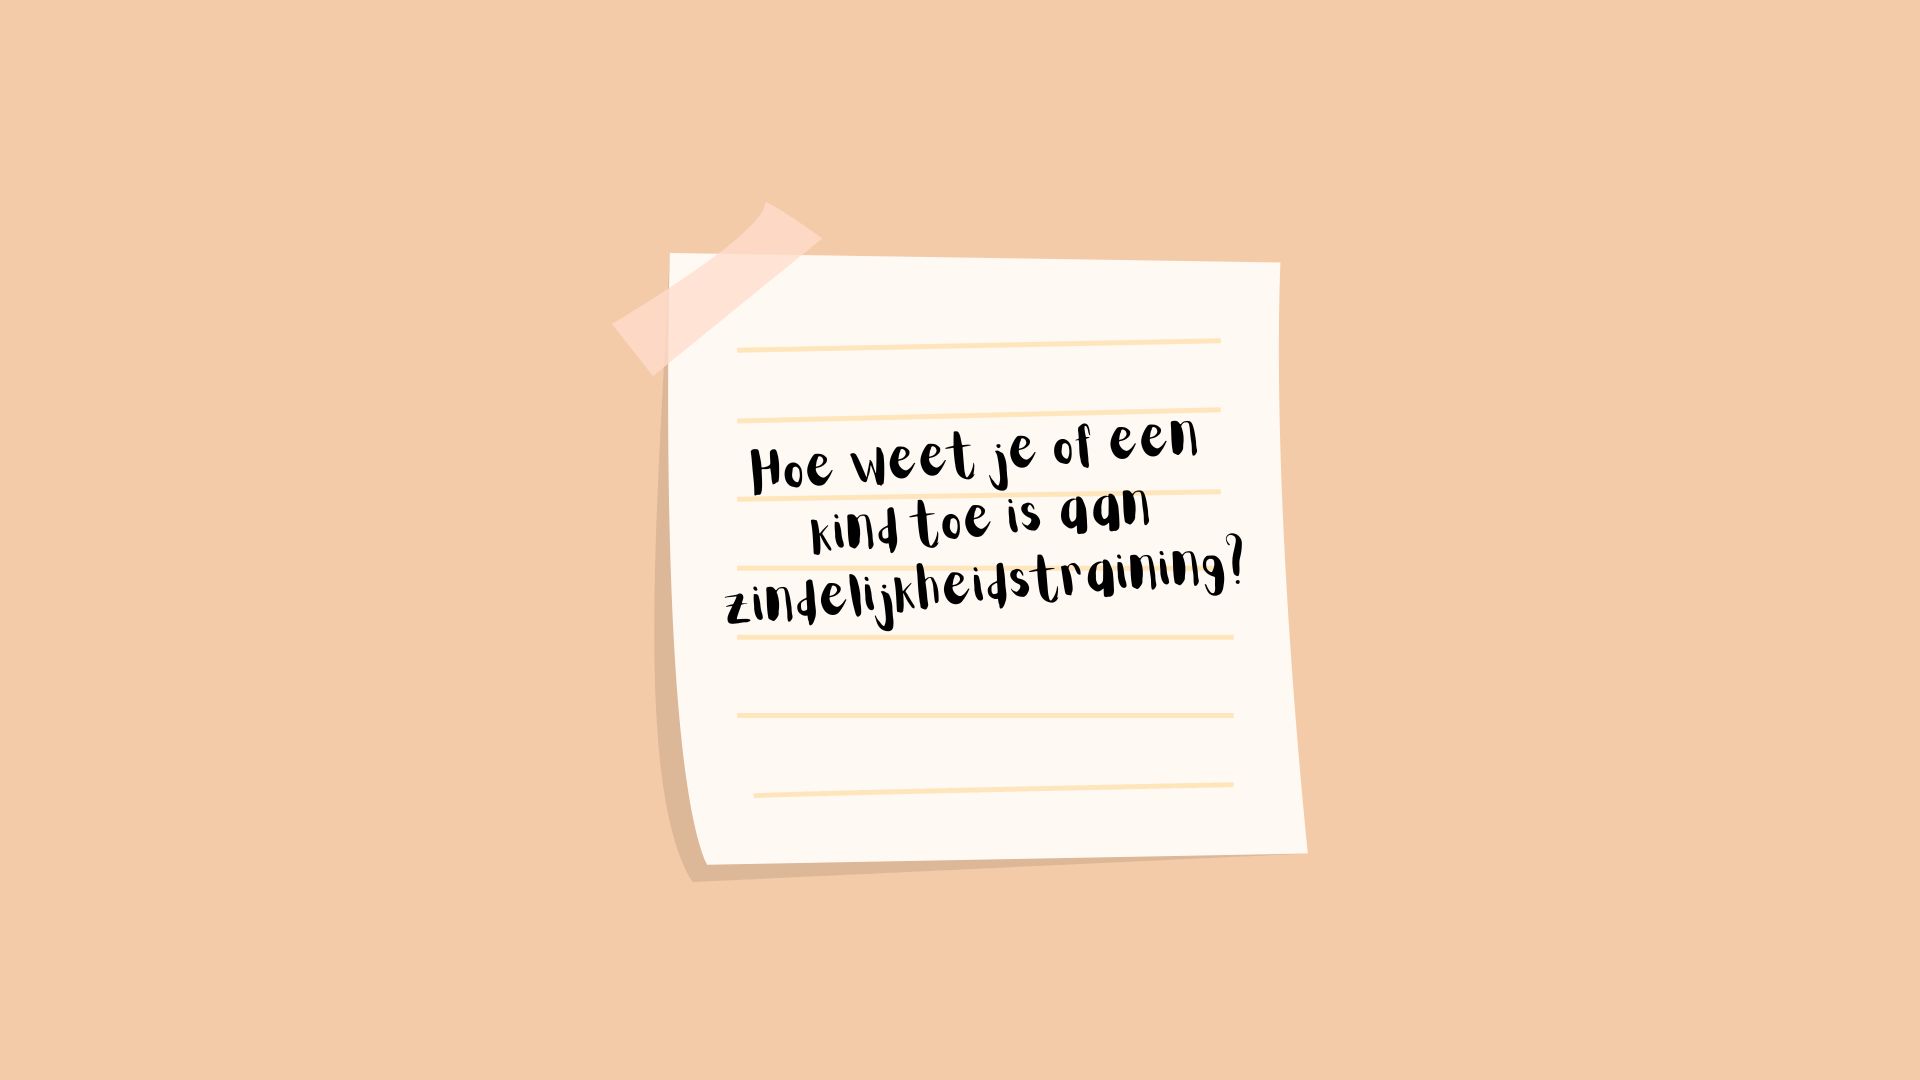 Hoe weet je of een
kind toe is aan
zindelijkheidstraining?